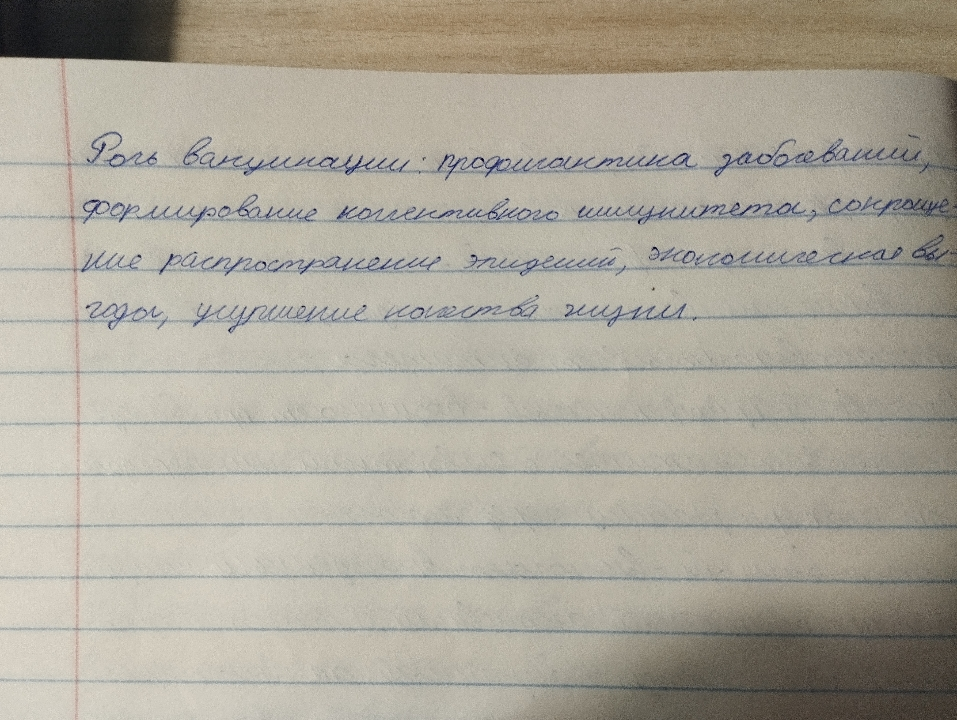 Роль вакцинации: профилактика заболеваний,
формирование коллективного иммунитета, сокраще-
ние распространение эпидемий, экономические вы-
годы, улучшение качества жизни.